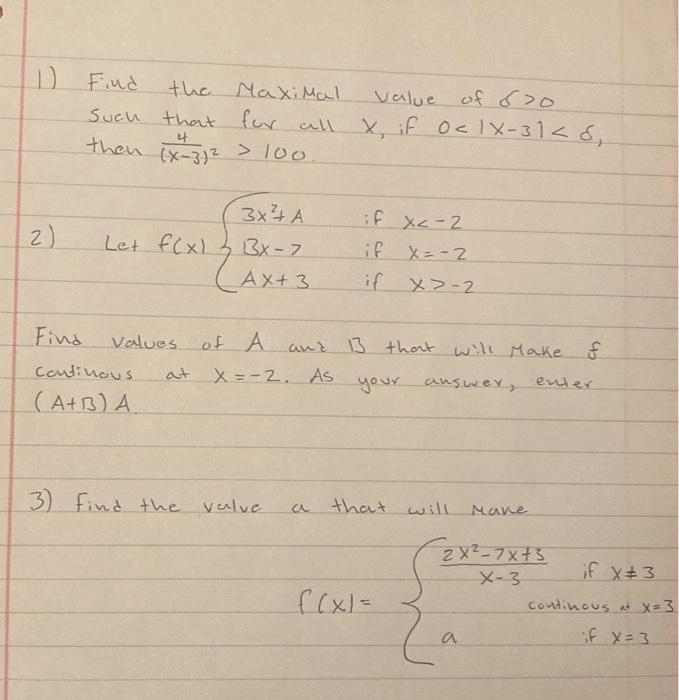 1) Find the Maximal value of δ>0
Such that for all x, if 0<|x-3|<δ,
then 4/(x-3)² > 100.
2) Let f(x) { 3x²+A if x<-2
Bx-7 if x=-2
Ax+3 if x>-2
Find values of A and B that will Make f
continous at x=-2. As your answer, enter
(A+B) A.
3) find the value a that will make
f(x)= { 2x²-7x+3 / x-3 if x≠3
continous at x=3
a if x=3